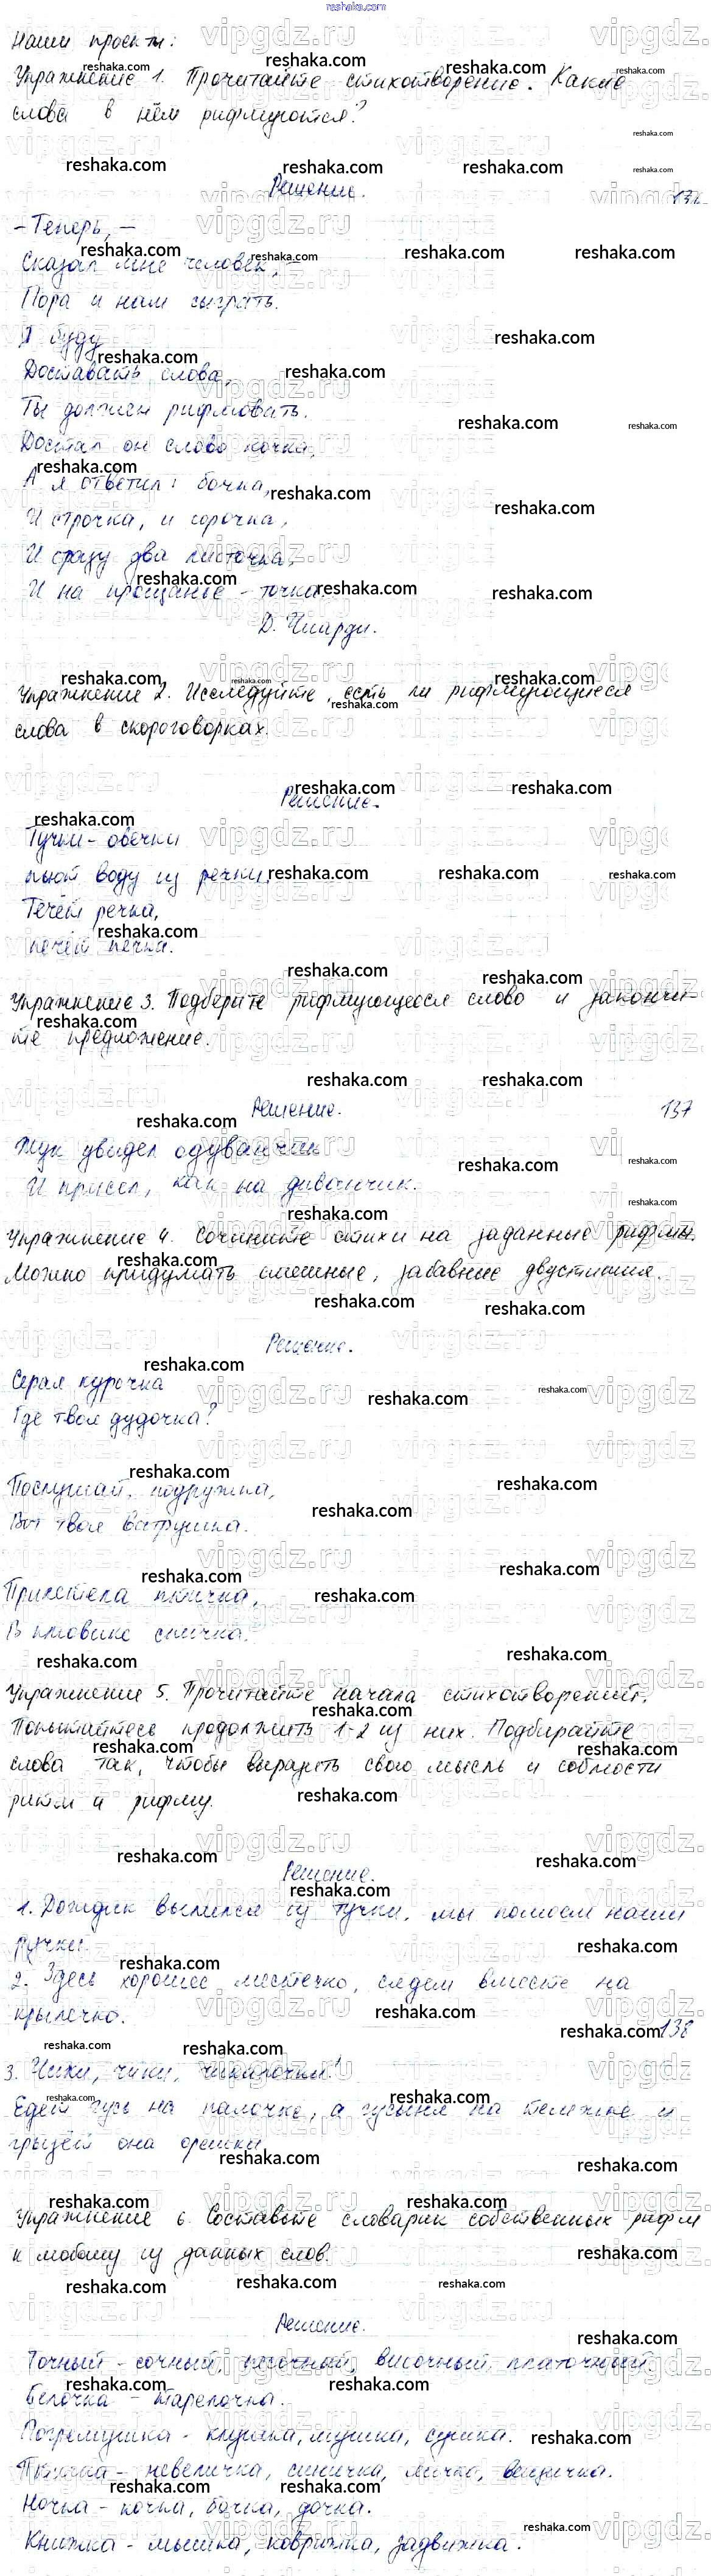 Наши проекты:
Упражнение 1. Прочитайте стихотворение. Какие
слова в нём рифмуются?
Решение.
- Теперь, -
Сказал мне человек, -
Пора и нам сыграть.
Я буду
Доставать слова,
Ты должен рифмовать.
Достал он слово кочка,
А я ответил: бочка,
И строчка, и сорочка,
И сразу два листочка,
И на прощанье - точка.
Д. Чиарди.
Упражнение 2. Исследуйте, есть ли рифмующиеся
слова в скороговорках.
Решение.
Тучки - овечки
пьют воду из речки.
Течёт речка,
печёт печка.
Упражнение 3. Подберите рифмующееся слово и закончи-
те предложение.
Решение.
137
Жук увидел одуванчик
И присел, как на диванчик.
Упражнение 4. Сочините стихи на заданные рифмы.
Можно придумать смешные, забавные двустишия.
Решение.
Серая курочка
Где твоя дудочка?
Послушай, подружка,
Вот твоя ватрушка.
Прилетела птичка,
В клювике спичка.
Упражнение 5. Прочитайте начала стихотворений.
Попытайтесь продолжить 1-2 из них. Подбирайте
слова так, чтобы выразить свою мысль и соблюсти
ритм и рифму.
Решение.
1. Дождик вылился из тучки, мы помоем наши
ручки.
2. Здесь хорошее местечко, сядем вместе на
крылечко.
138
3. Чики, чики, чикалочки!
Едет гусь на палочке, а гусыня на тележке и
грызёт она орешки.
Упражнение 6. Составьте словарик собственных рифм
к любому из данных слов.
Решение.
Точный - сочный, песочный, височный, платочный.
Белочка - тарелочка.
Погремушка - клушка, мушка, сушка.
Птичка - невеличка, синичка, личко, вещичка.
Ночка - кочка, бочка, дочка.
Книжка - мышка, коврижка, задвижка.